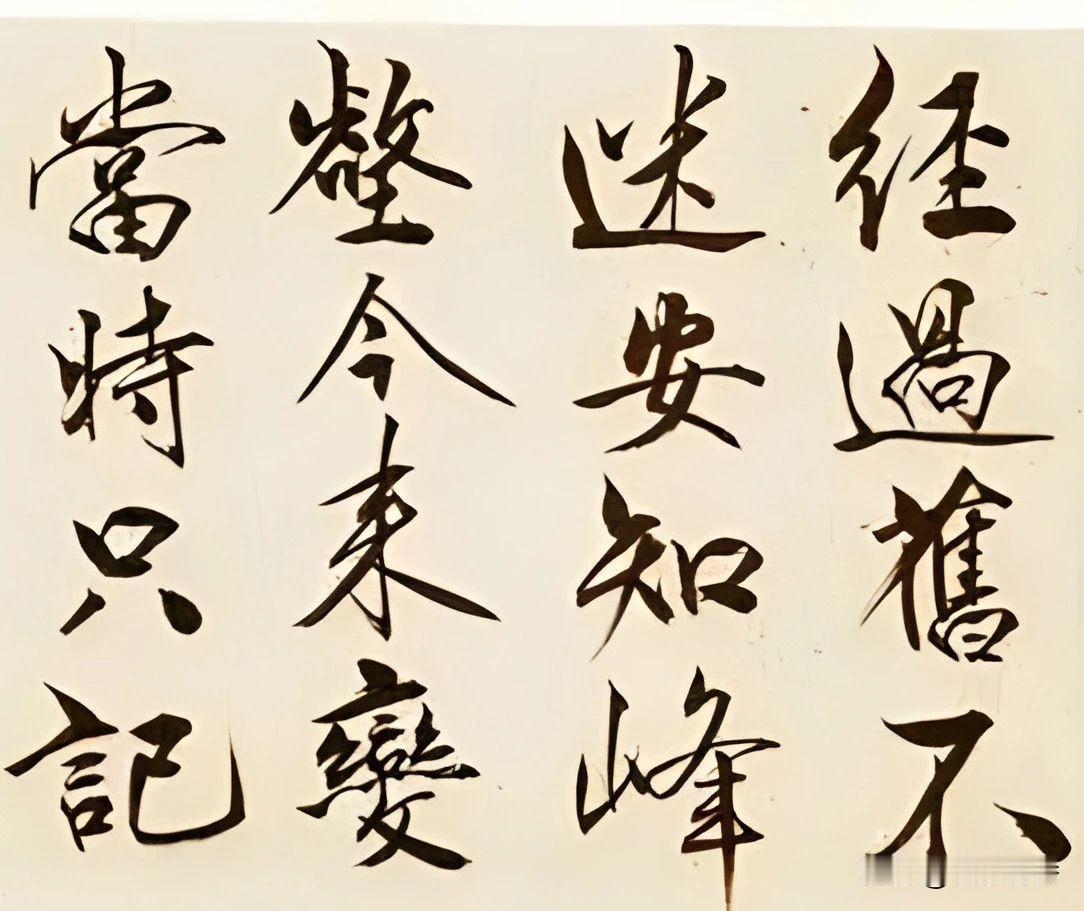 経過舊不
迷安知峰
壑今来變
當時只記